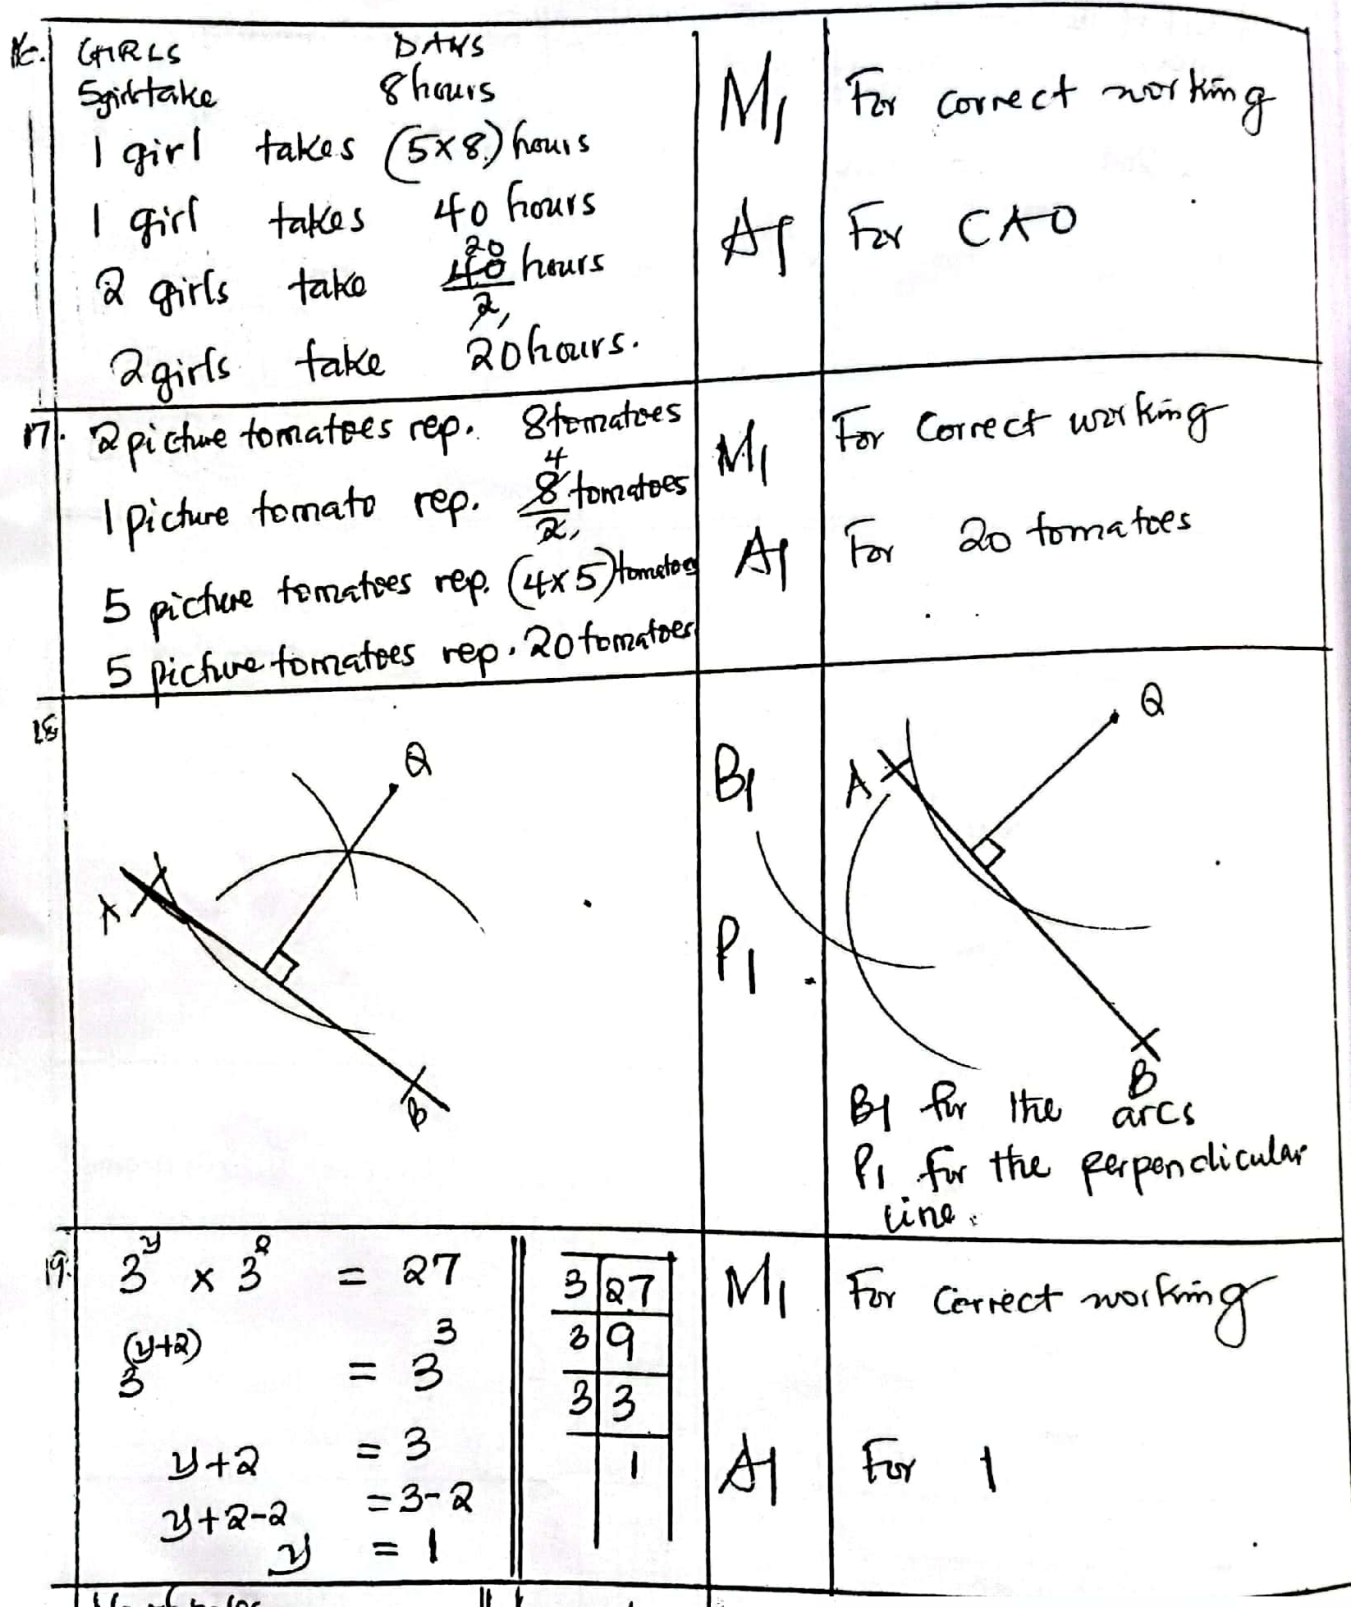 16. GIRLS DAYS
5girls take 8 hours
1 girl takes (5×8) hours
1 girl takes 40 hours
20
2 girls take 40/2 hours
1
2 girls take 20 hours.
M1 For correct working
A1 For CAO
17. 2 picture tomatoes rep. 8 tomatoes
4
1 picture tomato rep. 8/2 tomatoes
1
5 picture tomatoes rep. (4×5) tomatoes
5 picture tomatoes rep. 20 tomatoes
M1 For Correct working
A1 For 20 tomatoes
18
Q
A
B
B1
P1
Q
A
B
B1 for the arcs
P1 for the perpendicular
line.
19. 3^y × 3^2 = 27
3^(y+2) = 3^3
y+2 = 3
y+2-2 = 3-2
y = 1
3 27
3 9
3 3
1
M1 For correct working
A1 For 1